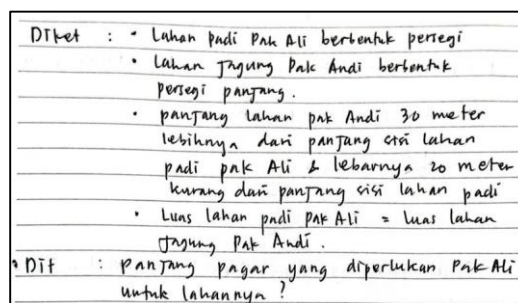 Diket : • Lahan padi Pak Ali berbentuk persegi
• Lahan Jagung Pak Andi berbentuk
persegi panjang.
• panjang lahan pak Andi 30 meter
lebihnya dari panjang sisi lahan
padi pak Ali & lebarnya 20 meter
kurang dari panjang sisi lahan padi
• Luas lahan padi Pak Ali = luas lahan
Jagung Pak Andi.
• Dit : panjang pagar yang diperlukan Pak Ali
untuk lahannya ?